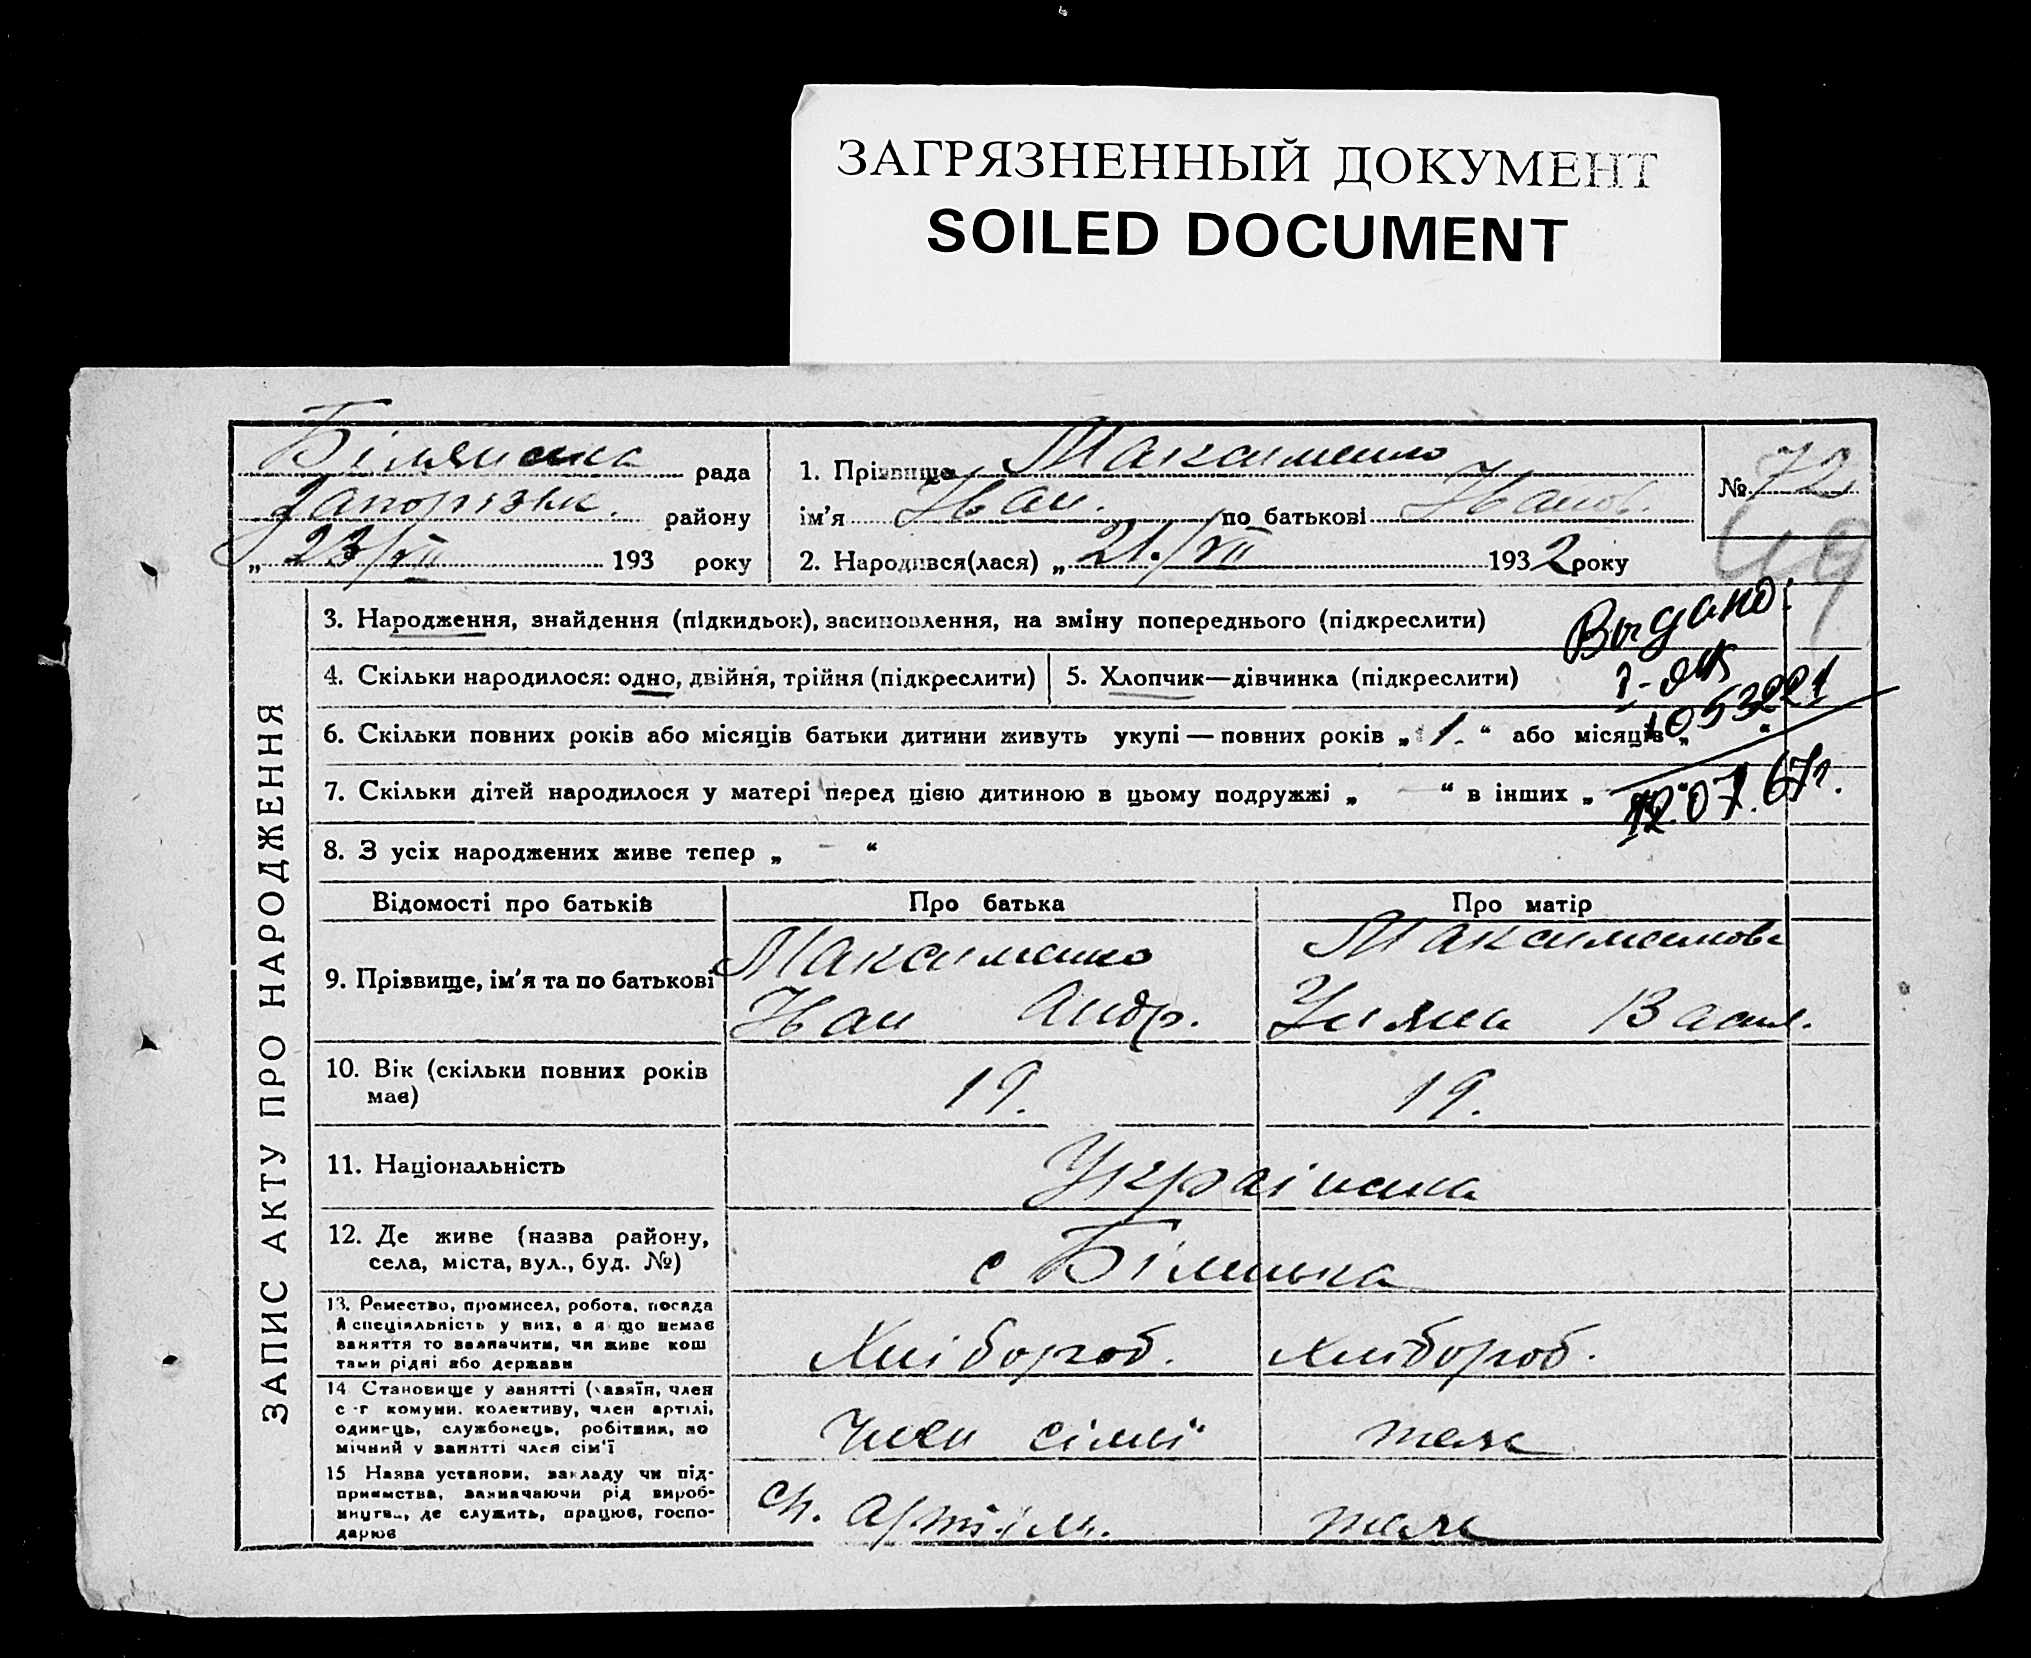 ЗАГРЯЗНЕННЫЙ ДОКУМЕНТ
SOILED DOCUMENT
Білянська рада
Запорізьк. району
„ 23/VII 193 року
1. Прізвище Максименко
ім'я Іван. по батькові Іванов.
2. Народився(лася) „ 21./VII 1932 року
№ 72
49
ЗАПИС АКТУ ПРО НАРОДЖЕННЯ
3. Народження, знайдення (підкидьок), засиновлення, на зміну попереднього (підкреслити)
Выдано
4. Скільки народилося: одно, двійня, трійня (підкреслити)
5. Хлопчик—дівчинка (підкреслити)
053221
6. Скільки повних років або місяців батьки дитини живуть укупі — повних років „ 1. “ або місяців „ “
7. Скільки дітей народилося у матері перед цією дитиною в цьому подружжі „ — “ в інших „ “
12.07.67г.
8. З усіх народжених живе тепер „ — “
Відомості про батьків
Про батька
Про матір
9. Прізвище, ім'я та по батькові
Максименко
Іван Андр.
Максименкова
Уляна Васил.
10. Вік (скільки повних років
має)
19.
19.
11. Національність
Українська
12. Де живе (назва району,
села, міста, вул., буд. №)
с Біленька
13. Ремество, промисел, робота, посада
й спеціяльність у них, а якщо немає
заняття то зазначити, чи живе кош
тами рідні або держави
Хлібороб.
хлібороб.
14 Становище у занятті (хазяїн, член
с-г комуни. колективу, член артілі,
одинець, службовець, робітник, по
мічний у занятті член сім'ї
член сімьї
теж
15 Назва установи, закладу чи під-
приємства, зазначаючи рід вироб-
ництва, де служить, працює, госпо-
дарює
сг. артіль.
теж